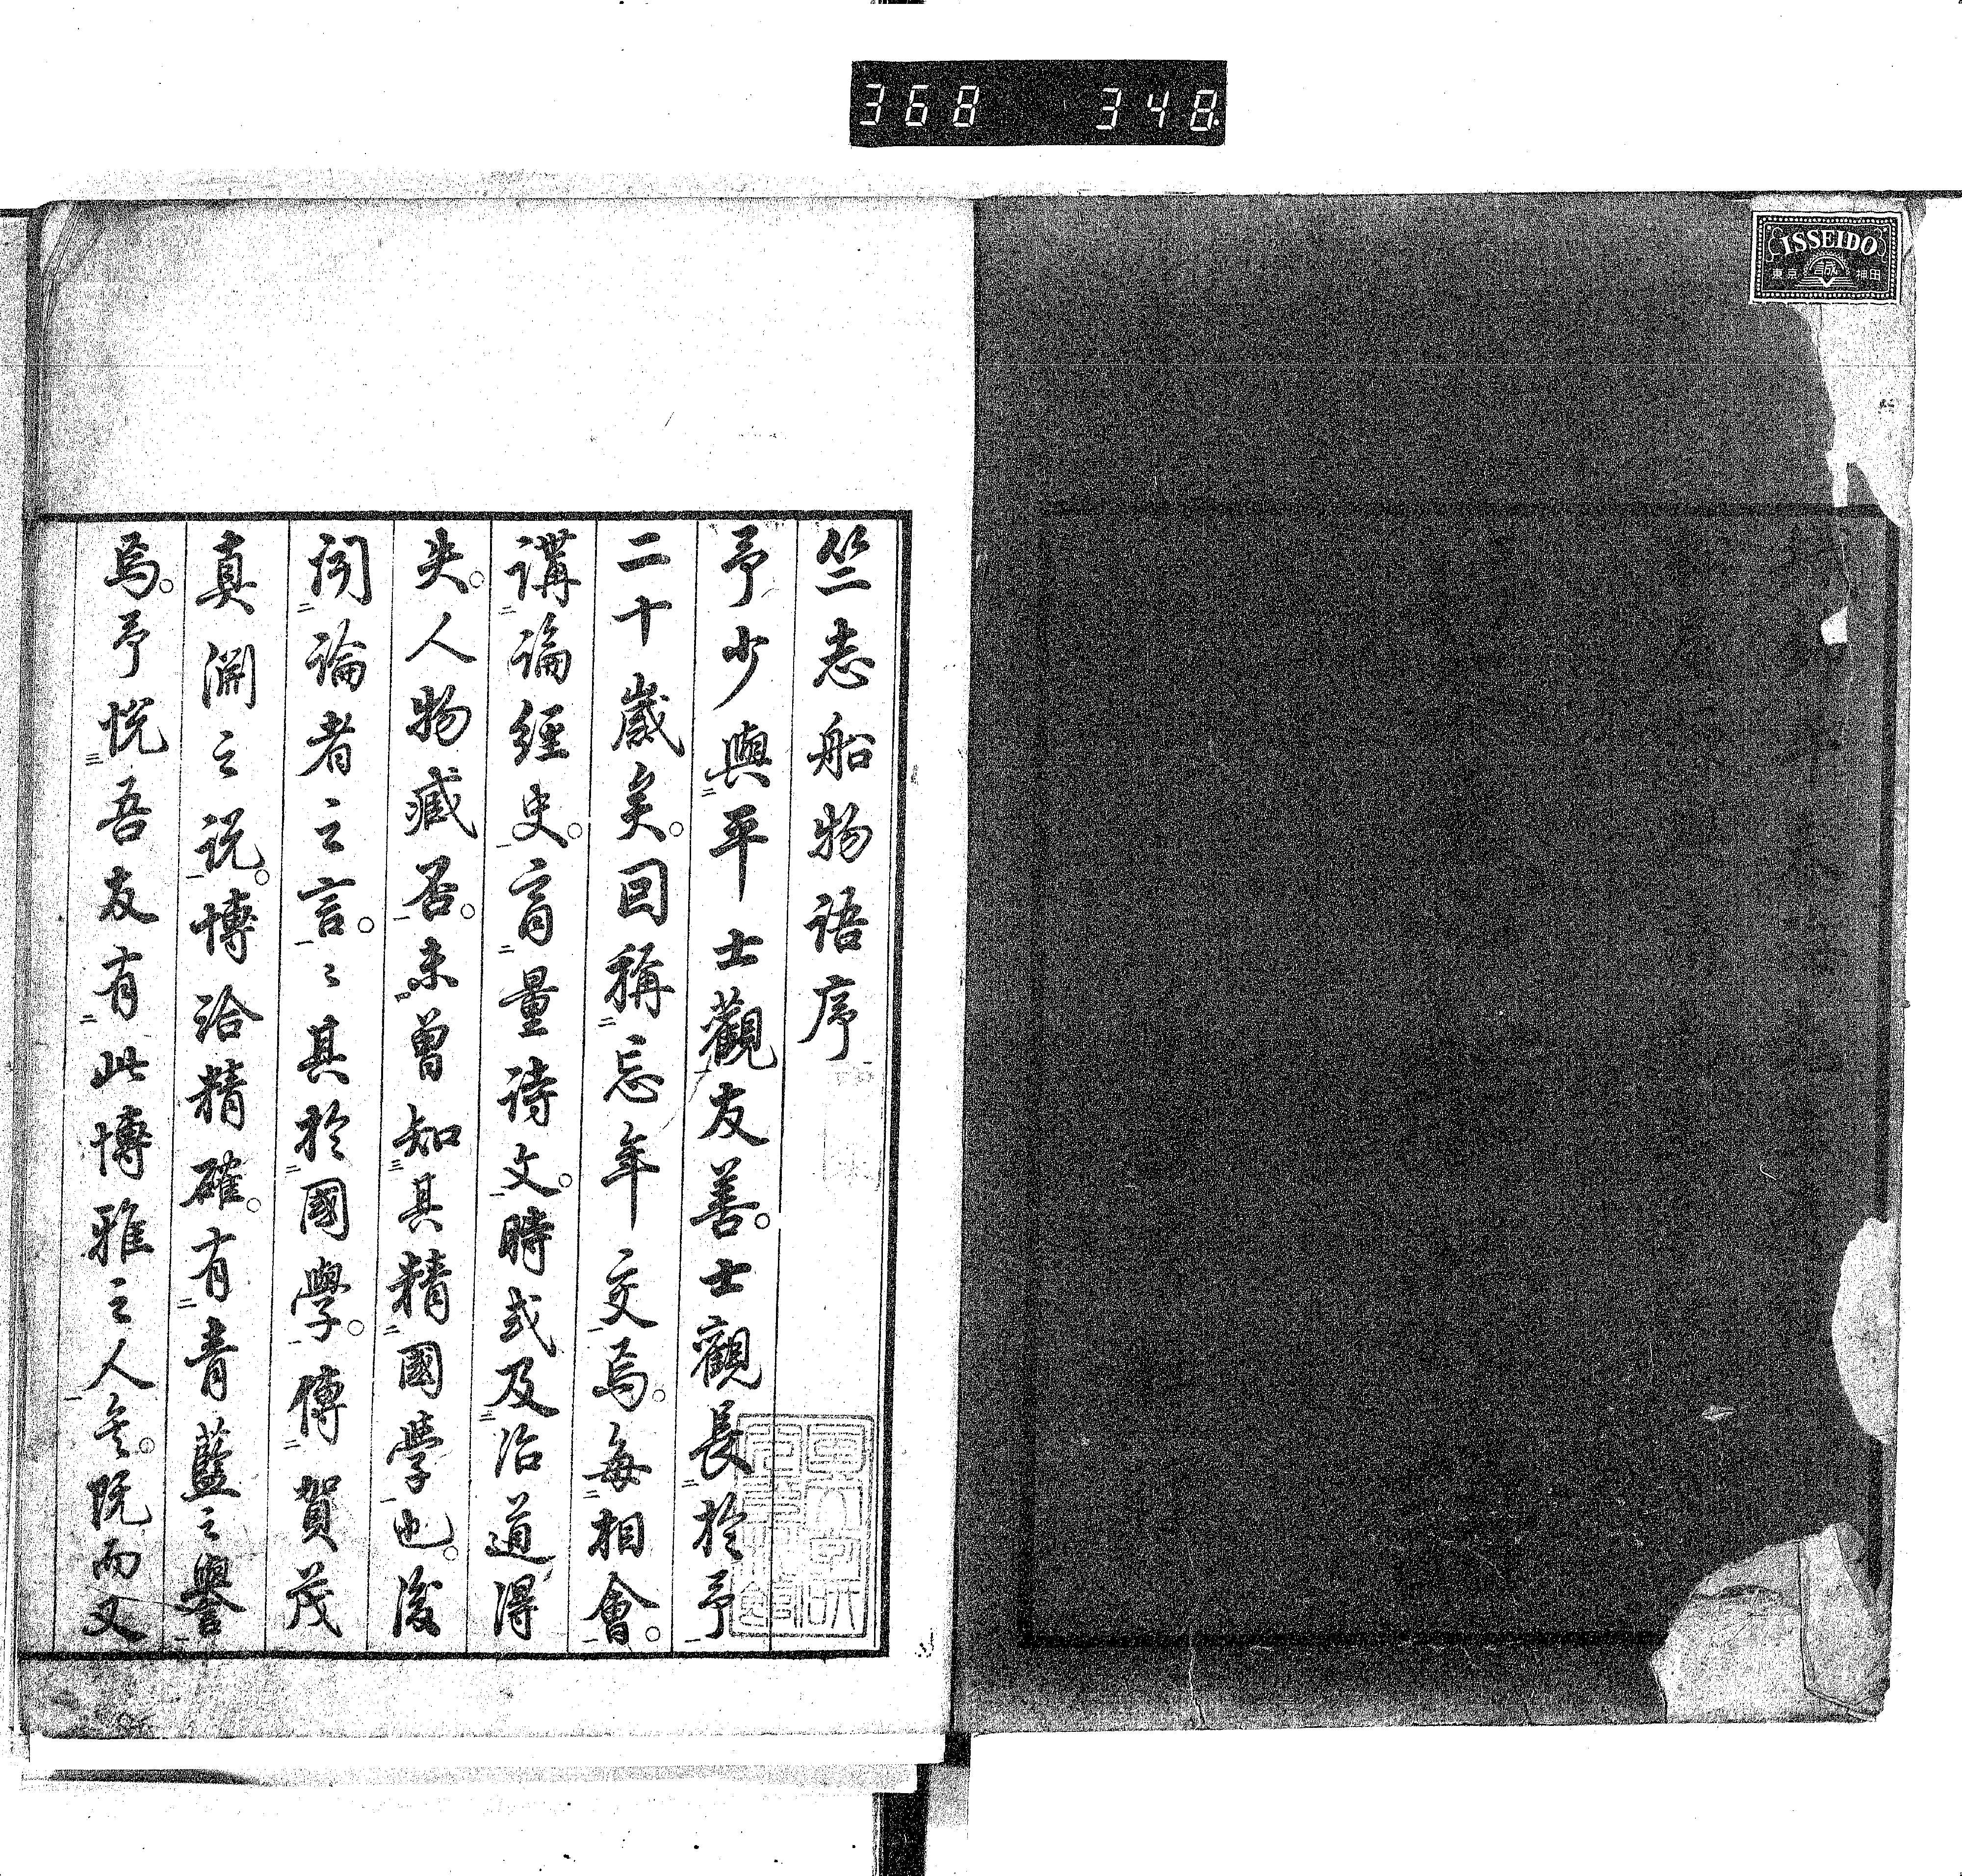 368 348.
ISSEIDO
東京 誠 神田
竺志船物語序
予少與平士觀友善。士觀長於予
二十歲矣。因稱忘年交焉。每相會。
講論經史。商量詩文。時或及治道得
失。人物臧否。未曾知其精國學也。後
聞論者之言。言其於國學。傳賀茂
真淵之說。博洽精確。有青藍之譽
焉。予悅吾友有此博雅之人矣。既而又